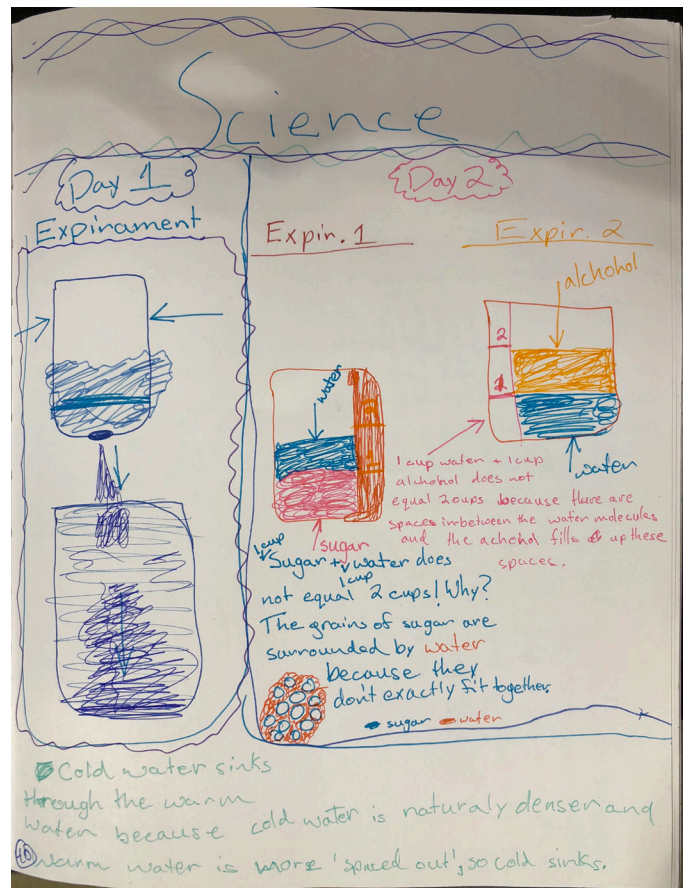 Science
Day 1
Expirament
Day 2
Expir. 1
water
2
1
sugar
1 cup
Sugar + water does
1 cup
not equal 2 cups! Why?
The grains of sugar are
surrounded by water
because they
don't exactly fit together.
sugar water
Expir. 2
alchohol
2
1
water
1 cup water + 1 cup
alchohol does not
equal 2 cups because there are
spaces inbetween the water molecules
and the achohol fills up these
spaces.
Cold water sinks
through the warm
water because cold water is naturaly denser and
warm water is more 'spaced out', so cold sinks.